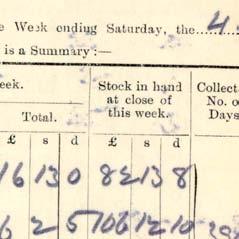 e Week ending Saturday, the ......4
is a Summary:—
eek. Stock in hand Collect
at close of No. o
Total. this week. Days
£ s d £ s d
16 13 0 82 13 8
6 2 5 706 12 10